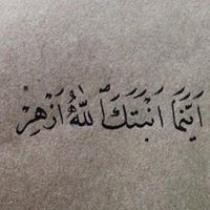 اَيْنَمَا اَنْبَتَكَ اللّٰهُ اَزْهِرْ